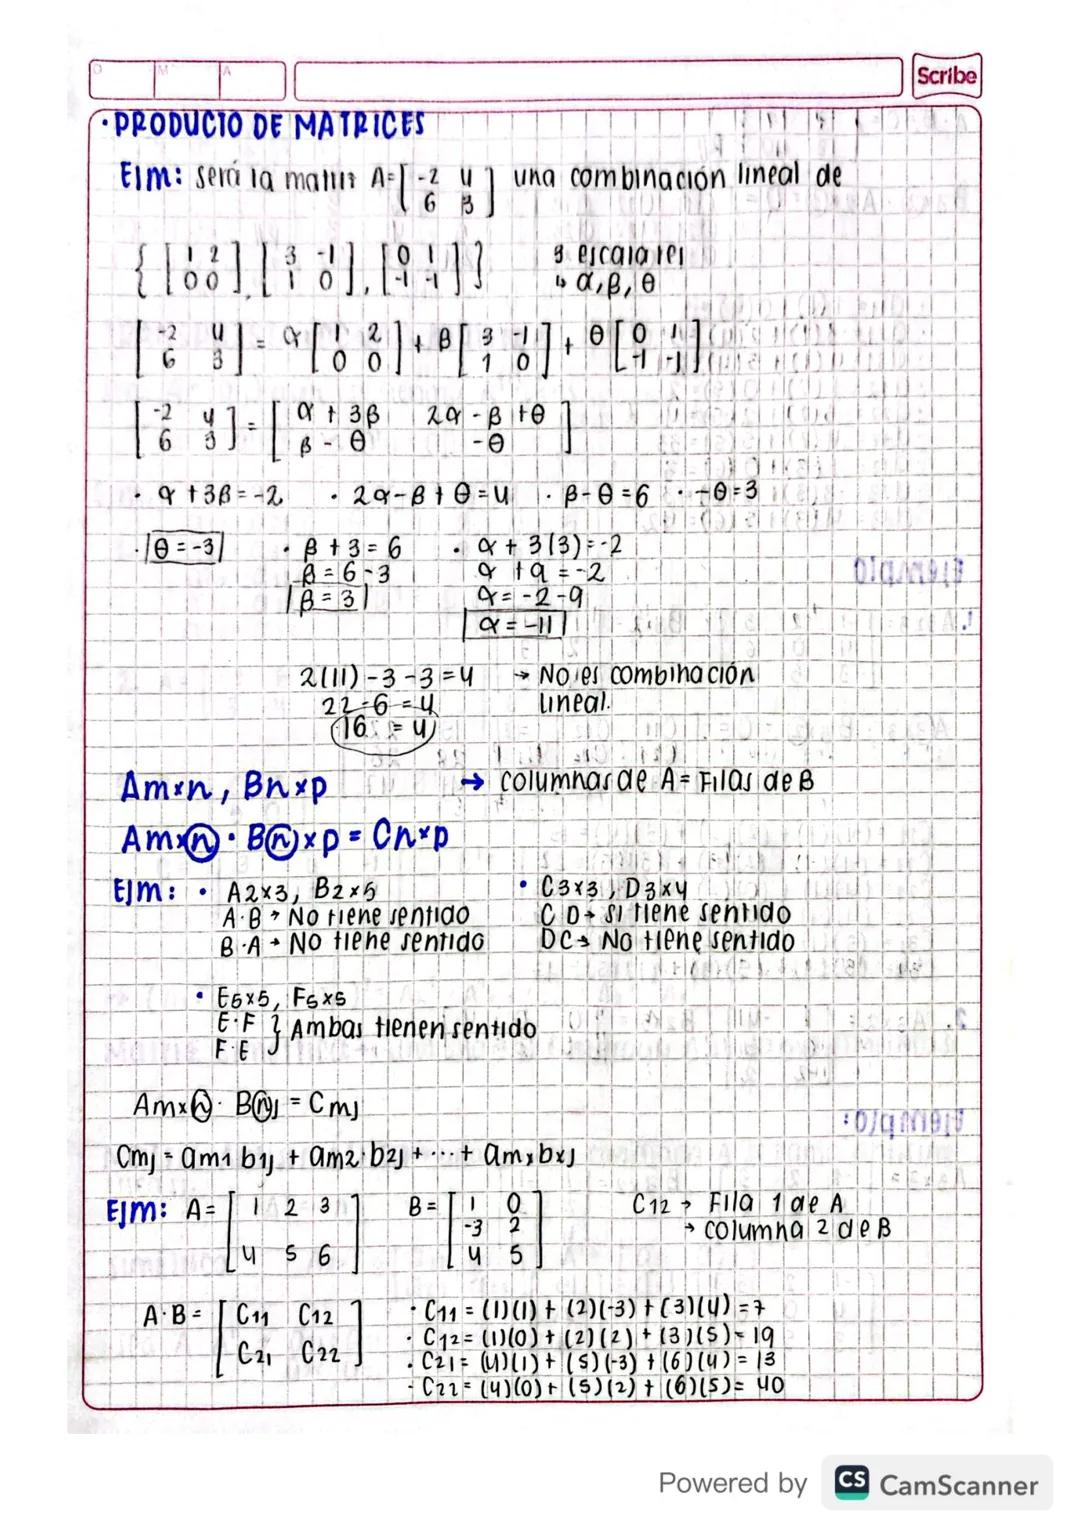 D M A
Scribe
· PRODUCTO DE MATRICES
EJm: será la matriz A=[-2 4; 6 3] una combinación lineal de
{ [1 2; 0 0], [3 -1; 1 0], [0 1; -1 -1] } 3 escalares
↳ α, β, θ
[-2 4; 6 3] = α [1 2; 0 0] + β [3 -1; 1 0] + θ [0 1; -1 -1]
[-2 4; 6 3] = [α + 3β 2α - β + θ; β - θ -θ]
· α + 3β = -2 · 2α - β + θ = 4 · β - θ = 6 · -θ = 3
· θ = -3 · β + 3 = 6 · α + 3(3) = -2
β = 6 - 3 α + 9 = -2
β = 3 α = -2 - 9
α = -11
2(11) - 3 - 3 = 4 → No es combinación
22 - 6 = 4 lineal.
16 = 4
Am×n, Bn×p → columnas de A = Filas de B
Am×n · Bn×p = Cn×p
EJm: · A2×3, B2×5 · C3×3, D3×4
A·B → No tiene sentido C D → si tiene sentido
B·A → No tiene sentido DC → No tiene sentido
· E5×5, F5×5
E·F } Ambas tienen sentido
F·E
Am×n · Bnj = Cmj
Cmj = am1 b1j + am2·b2j + ... + amxbxj
EJm: A = [1 2 3; 4 5 6] B = [1 0; -3 2; 4 5] C12 → Fila 1 de A
→ columna 2 de B
A·B = [C11 C12; C21 C22] · C11 = (1)(1) + (2)(-3) + (3)(4) = 7
· C12 = (1)(0) + (2)(2) + (3)(5) = 19
· C21 = (4)(1) + (5)(-3) + (6)(4) = 13
· C22 = (4)(0) + (5)(2) + (6)(5) = 40
Powered by CS CamScanner